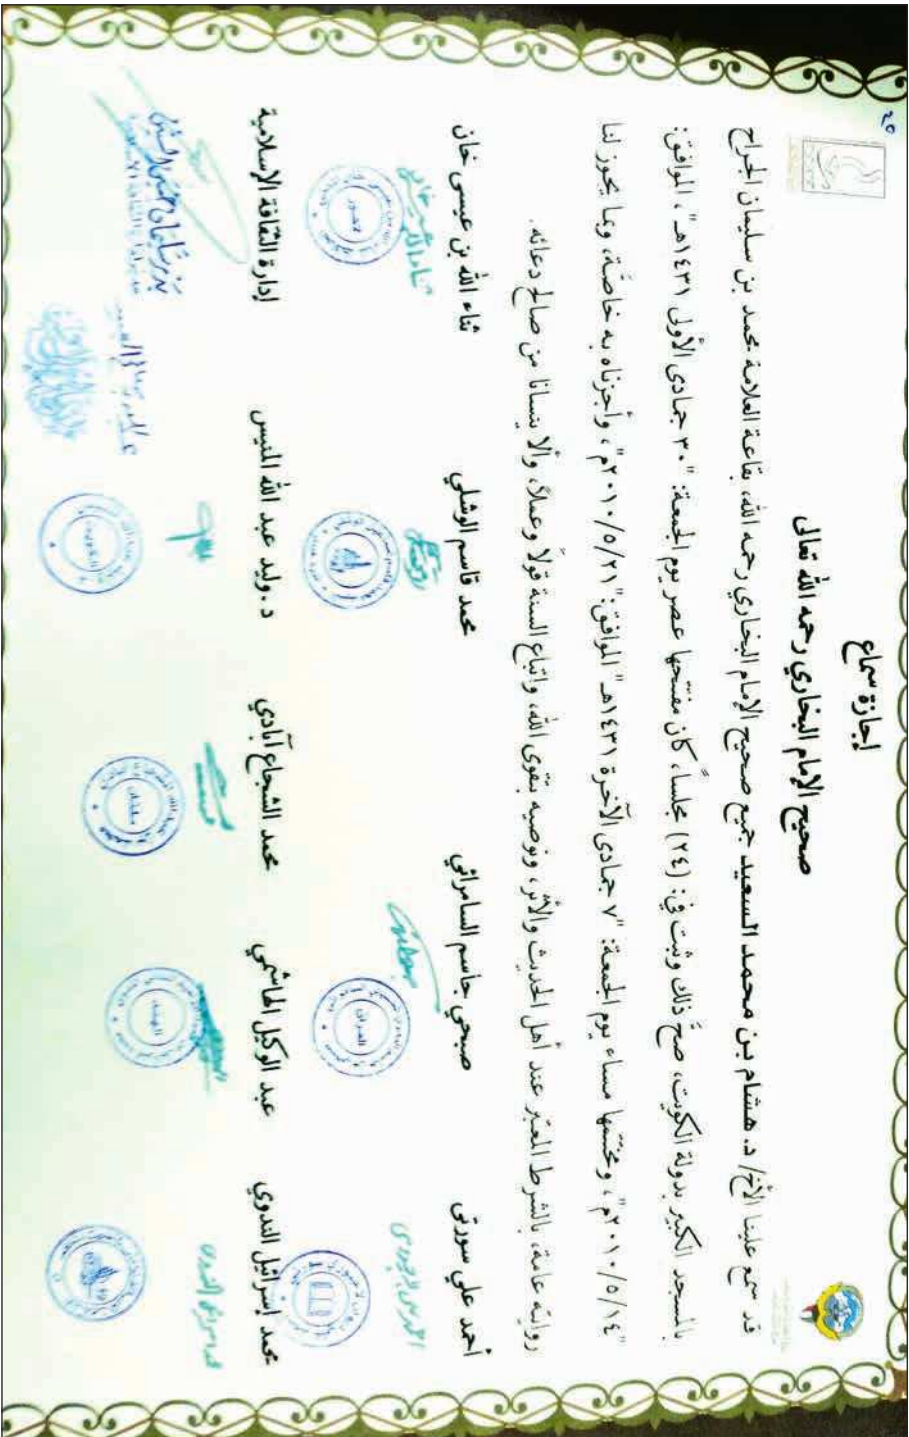 ٢٥
إجازة سماع
صحيح الإمام البخاري رحمه الله تعالى
قد سمع علينا الأخ/ د. هشام بن محمد السعيد جميع صحيح الإمام البخاري رحمه الله، بقاعة العلامة محمد بن سليمان الجراح
بالمسجد الكبير بدولة الكويت، صحَّ ذلك وثبت في: (٢٤) مجلساً، كان مفتتحها عصر يوم الجمعة: "٣٠ جمادى الأولى ١٤٣١هـ"، الموافق:
"٢٠١٠/٥/١٤م"، ومختتمها مساء يوم الجمعة: "٧ جمادى الآخرة ١٤٣١هـ" الموافق: "٢٠١٠/٥/٢١م"، وأجزناه به خاصَّة، وبما يجوز لنا
روايته عامة، بالشرط المعتبر عند أهل الحديث والأثر، ونوصيه بتقوى الله، واتباع السنة قولاً وعملاً، وألا ينسانا من صالح دعائه.
أحمد علي سورتي صبحي جاسم السامرائي محمد قاسم الوشلي ثناء الله بن عيسى خان
العراق
محمد إسرائيل الندوي عبد الوكيل الهاشمي محمد الشجاع آبادي د. وليد عبد الله المنيس إدارة الثقافة الإسلامية
الهند
الكويت